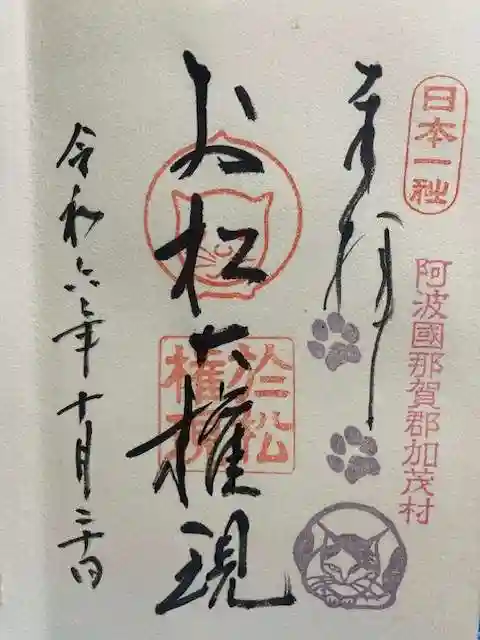 日本一社
阿波國那賀郡加茂村
奉拝
お松大権現
於松
権現
令和六年十月二十日